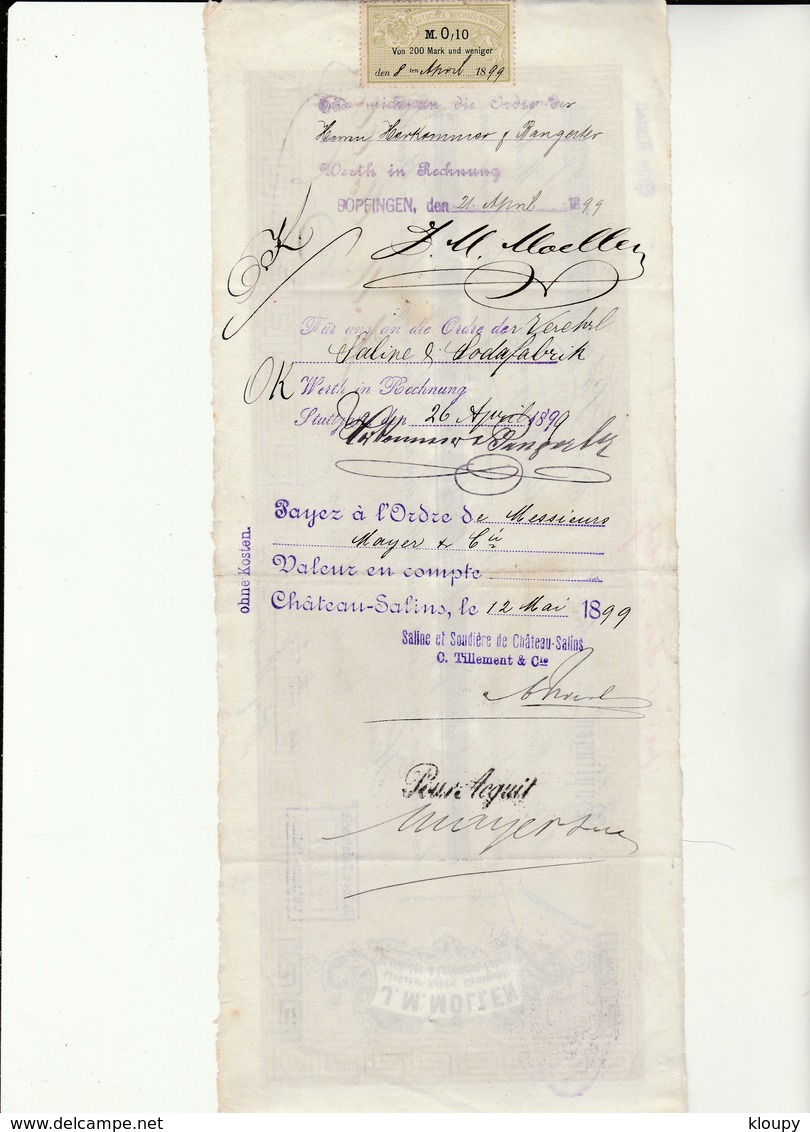 DEUTSCHER WECHSEL-STEMPEL
M. 0,10
Von 200 Mark und weniger
den 8 ten April 1899
an die Order der
Herren Herkommer & Bangerter
Werth in Rechnung
BOPFINGEN, den 21. April 1899
J. M. Moeller
Für uns an die Ordre der Verehrl
Saline & Sodafabrik
OK
Werth in Rechnung
Stuttgart den 26 April 1899
Herkommer & Bangerter
Payez à l'Ordre de Messieurs
Mayer & Cie
Valeur en compte
Château-Salins, le 12 Mai 1899
ohne Kosten.
Saline et Soudière de Château-Salins
C. Tillement & Cie
Pour Acquit
J. M. MÖLLEN
kloupy